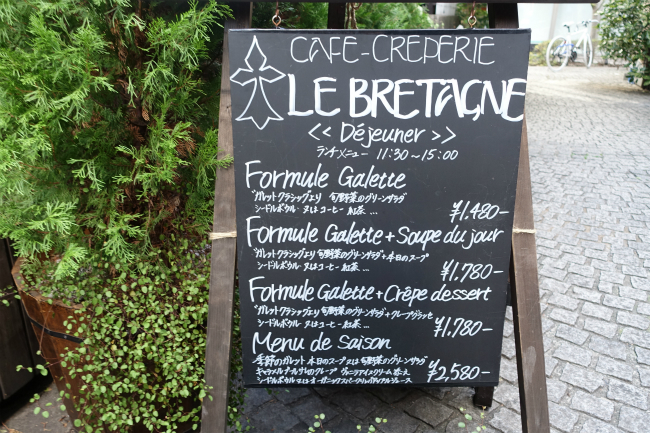 CAFE-CREPERIE
LE BRETAGNE
<< Déjeuner >>
ランチメニュー 11:30~15:00
Formule Galette
ガレットクラシックより 旬野菜のグリーンサラダ
シードルボウル 又はコーヒー 紅茶 ...
¥1.480-
Formule Galette + Soupe du jour
ガレットクラシックより 旬野菜のグリーンサラダ + 本日のスープ
シードルボウル 又はコーヒー 紅茶 ...
¥1.780-
Formule Galette + Crêpe dessert
ガレットクラシックより 旬野菜のグリーンサラダ + クレープクラシック
シードルボウル 又はコーヒー 紅茶 ...
¥1.780-
Menu de Saison
季節のガレット 本日のスープ又は旬野菜のグリーンサラダ
キャラメルブールサレのクレープ ヴァニラアイスクリーム添え
シードルボウル又はオーガニックスパークリングアップルジュース
¥2,580-